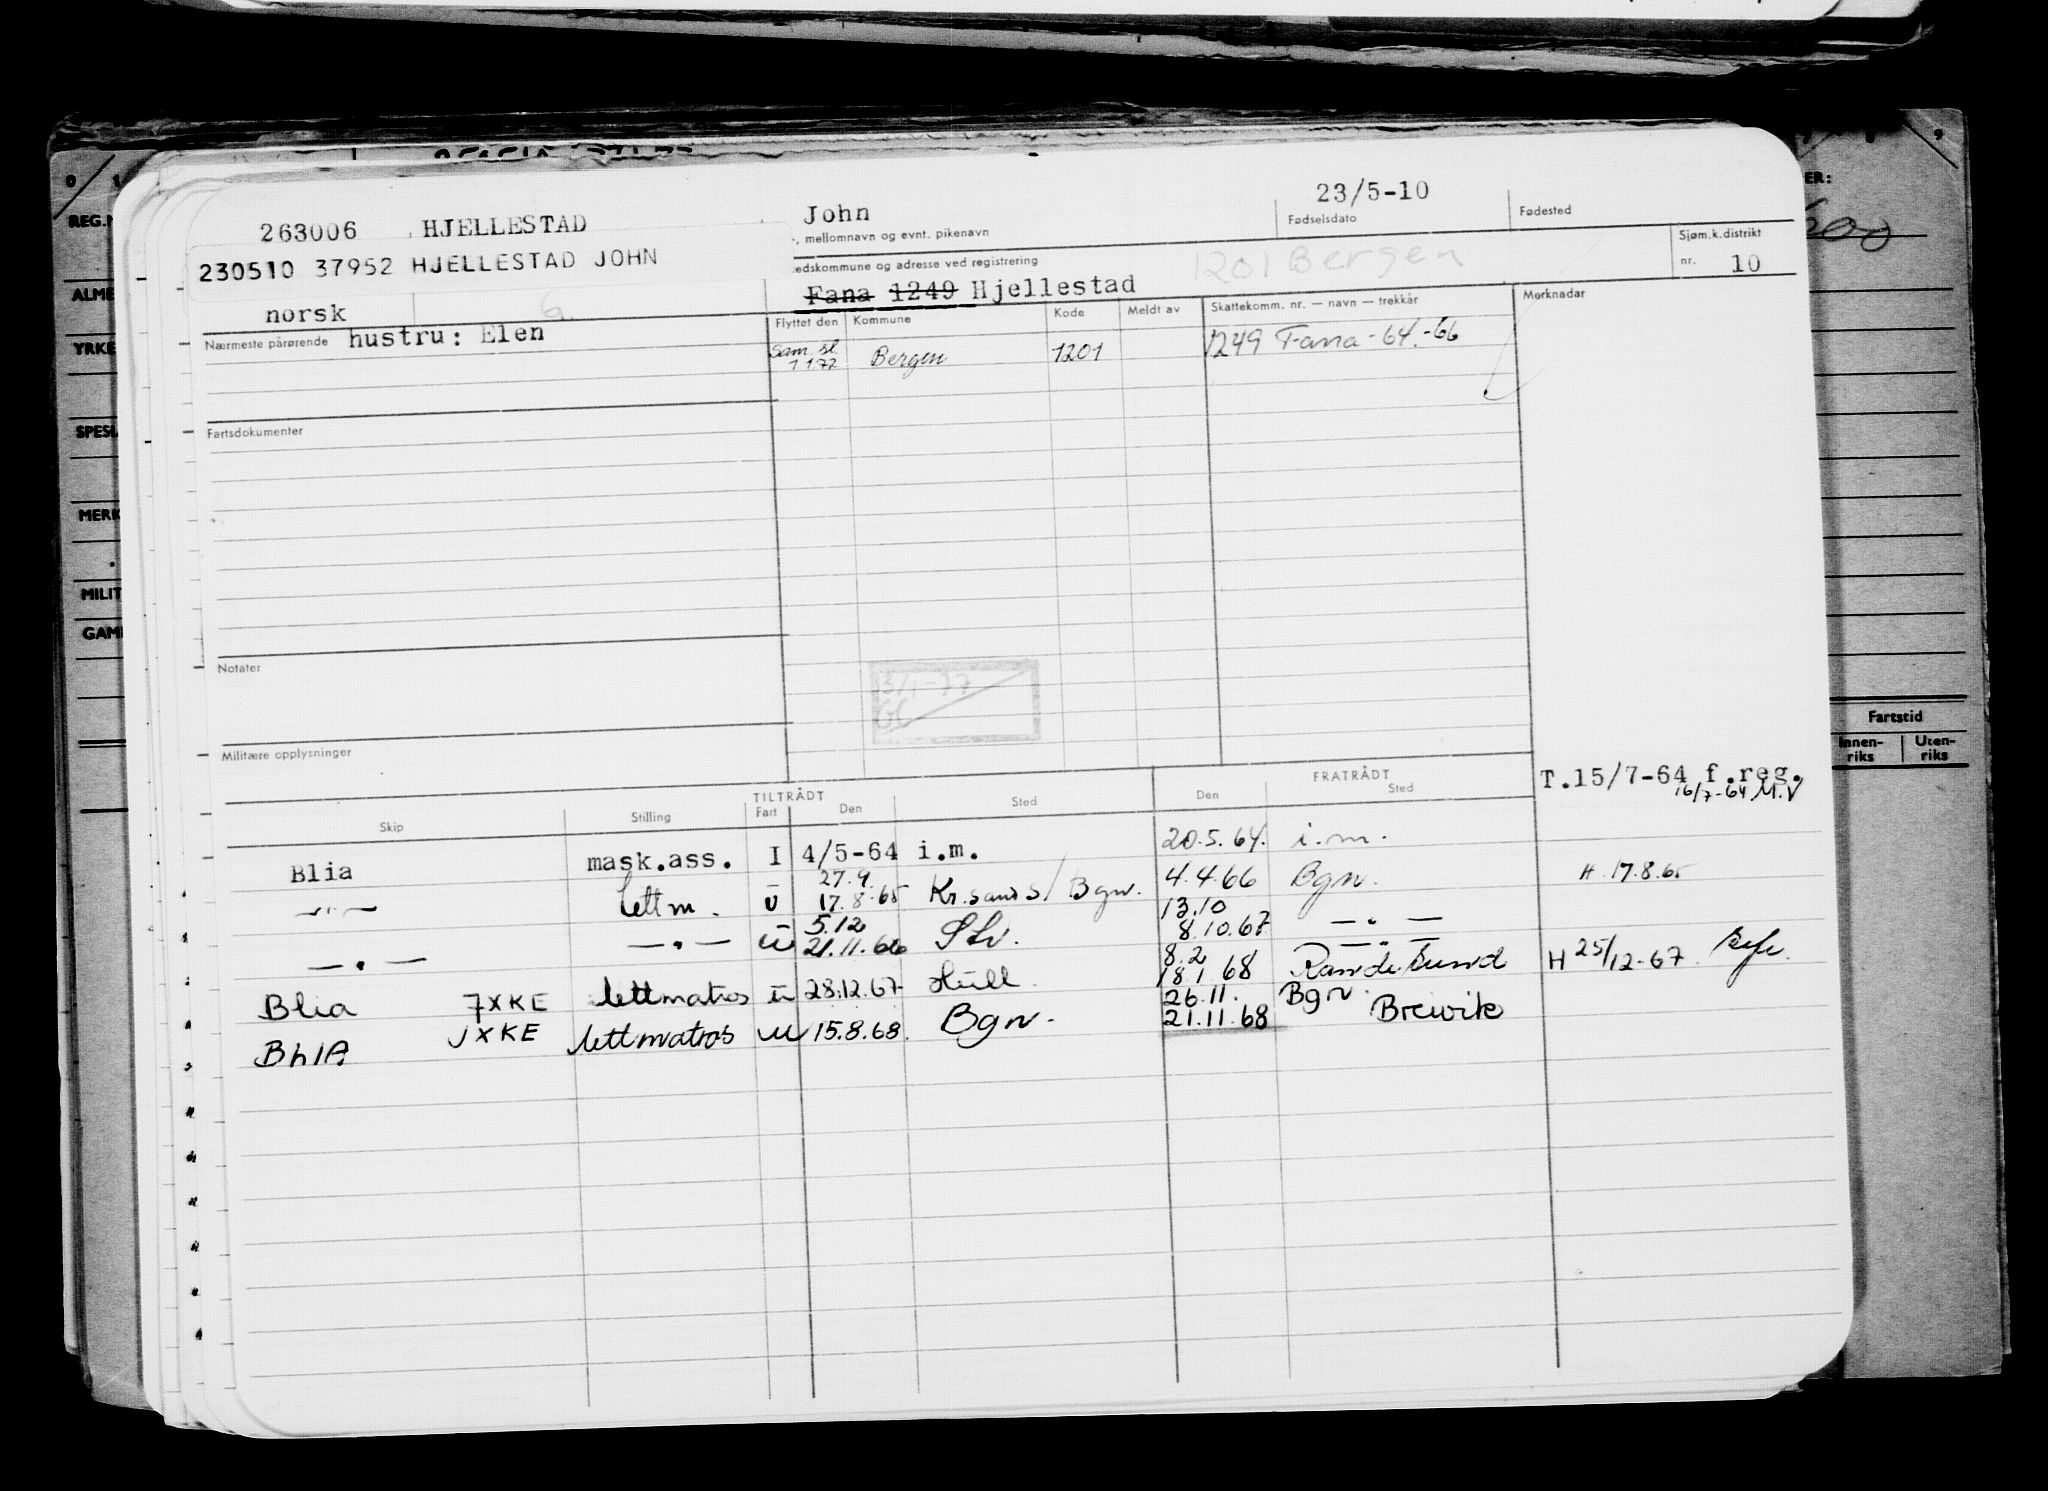 263006 HJELLESTAD John 23/5-10
mellomnavn og evnt. pikenavn Fødselsdato Fødested
230510 37952 HJELLESTAD JOHN
edskommune og adresse ved registrering 1201 Bergen Sjøm.k.distrikt
nr. 10
norsk Fana 1249 Hjellestad
Nærmeste pårørende hustru: Elen
Flyttet den Kommune Kode Meldt av Skattekomm. nr. — navn — trekkår Merknadar
Sam. sl. 1249 Fana -64.-66
1 1 72 Bergen 1201
Fartsdokumenter
Notater
Militære opplysninger
TILTRÅDT FRATRÅDT T.15/7-64 f.reg.
16/7-64 M.V
Skip Stilling Fart Den Sted Den Sted
Blia mask.ass. I 4/5-64 i.m. 20.5.64. i.m.
27.9.
—"— lettm. U 17.8.65 Kr.sand S/Bgn. 4.4.66 Bgn. H 17.8.65
5.12 13.10
—"— —"— U 21.11.66 8.10.67 —"—
8.2 —"—
Blia JXKE lettmatros U 28.12.67 Hull 18 1 68 H 25/12-67
26.11. Bgn.
BLIA JXKE lettmatros U 15.8.68. Bgn. 21.11.68 Brevik
REG.N
ALME
YRKE
SPESI
MERK
MILIT
GAM
ER:
Fartstid
Innen-
riks
Uten-
riks